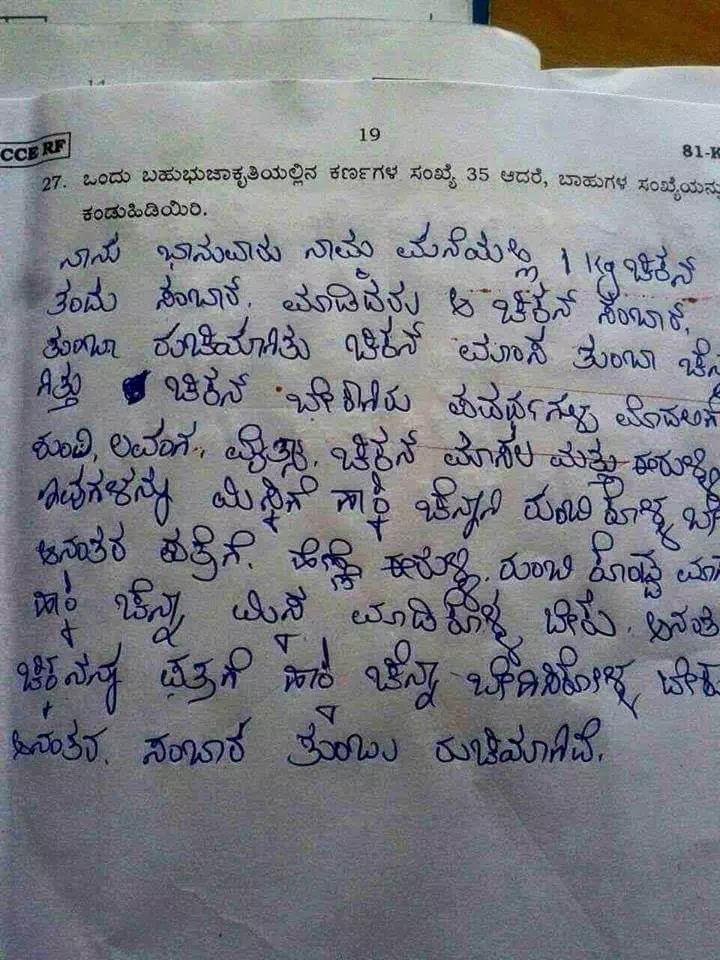 CCE RF
19
81-K
27. ಒಂದು ಬಹುಭುಜಾಕೃತಿಯಲ್ಲಿನ ಕರ್ಣಗಳ ಸಂಖ್ಯೆ 35 ಆದರೆ, ಬಾಹುಗಳ ಸಂಖ್ಯೆಯನ್ನು
ಕಂಡುಹಿಡಿಯಿರಿ.
ನಾನು ಭಾನುವಾರು ನಾಮ್ಮ ಮನೆಯಲ್ಲಿ 1 Kg ಚಿಕನ್
ತಂದು ಸಂಬಾರ. ಮಾಡಿದರು ಆ ಚಿಕನ್ ಸಂಬಾರ.
ತುಂಬಾ ರುಚಿಯಾಗಿತು ಚಿಕನ್ ಮಾಂಸ ತುಂಬಾ ಚೆನ್ನ
ಗಿತ್ತು ಚಿಕನ್ ಬೇಕಾಗಿರು ಪದರ್ಥಗಳು ಮೊದಲಗೆ
ಶುಂಠಿ, ಲವಂಗ, ಚಿಕನ್ ಮಾಸಲ ಮತ್ತು ಈರುಳ್ಳಿ
ಇವುಗಳನ್ನು ಮಿಕ್ಸಿಗೆ ಹಾಕಿ ಚೆನ್ನಾಗಿ ರುಬ್ಬಿ ಕೊಳ್ಳ ಬೇ
ಆನಂತರ ಪತ್ರೆಗೆ. ಈರುಳ್ಳಿ. ರುಂಬಿ ಕೊಂಡ್ಡ ಮಾ
ಹಾಕಿ ಚೆನ್ನಾ ಮಿಸ ಮಾಡಿಕೊಳ್ಳ ಬೇಕು. ಆನಂತ
ಚಿಕನನ್ನು ಪತ್ರಗೆ ಹಾಕಿ ಚೆನ್ನಾ ಬೇಯಿಸಿಕೋಳ್ಳ ಬೇಕು
ಆನಂತರ. ಸಂಬಾರ ತುಂಬು ರುಚಿಯಾಗಿವೆ.